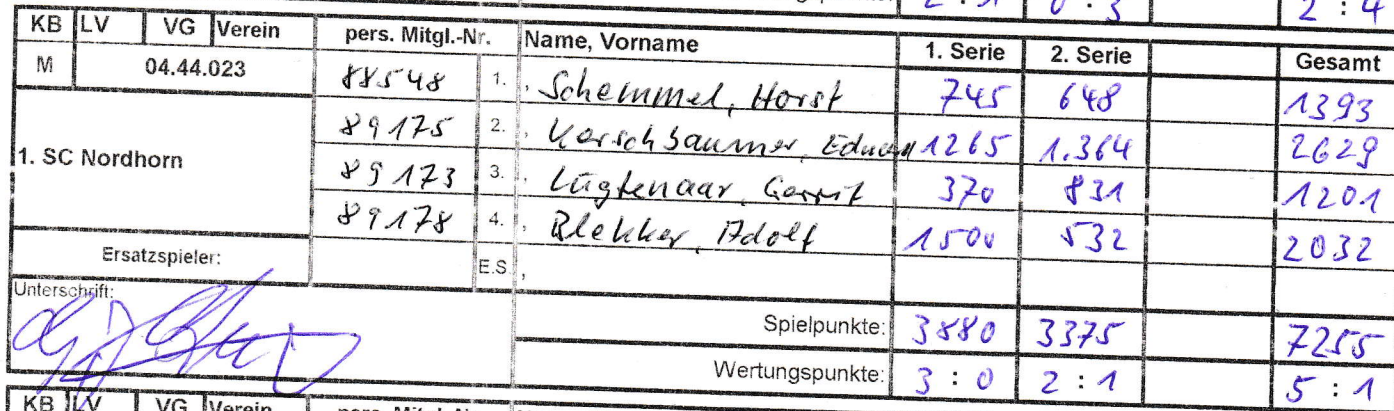 2 : 1 0 : 3 2 : 4
KB LV VG Verein pers. Mitgl.-Nr. Name, Vorname 1. Serie 2. Serie Gesamt
M 04.44.023 88548 1. , Schemmel, Horst 745 648 1393
89175 2. , Kerschbaumer, Eduard 1265 1.364 2629
1. SC Nordhorn 89173 3. , Lügtenaar, Gerrit 370 831 1201
89178 4. , Blekker, Adolf 1500 532 2032
Ersatzspieler: E.S. ,
Unterschrift:
Spielpunkte: 3880 3375 7255
Wertungspunkte: 3 : 0 2 : 1 5 : 1
KB LV VG Verein pers. Mitgl.-Nr.